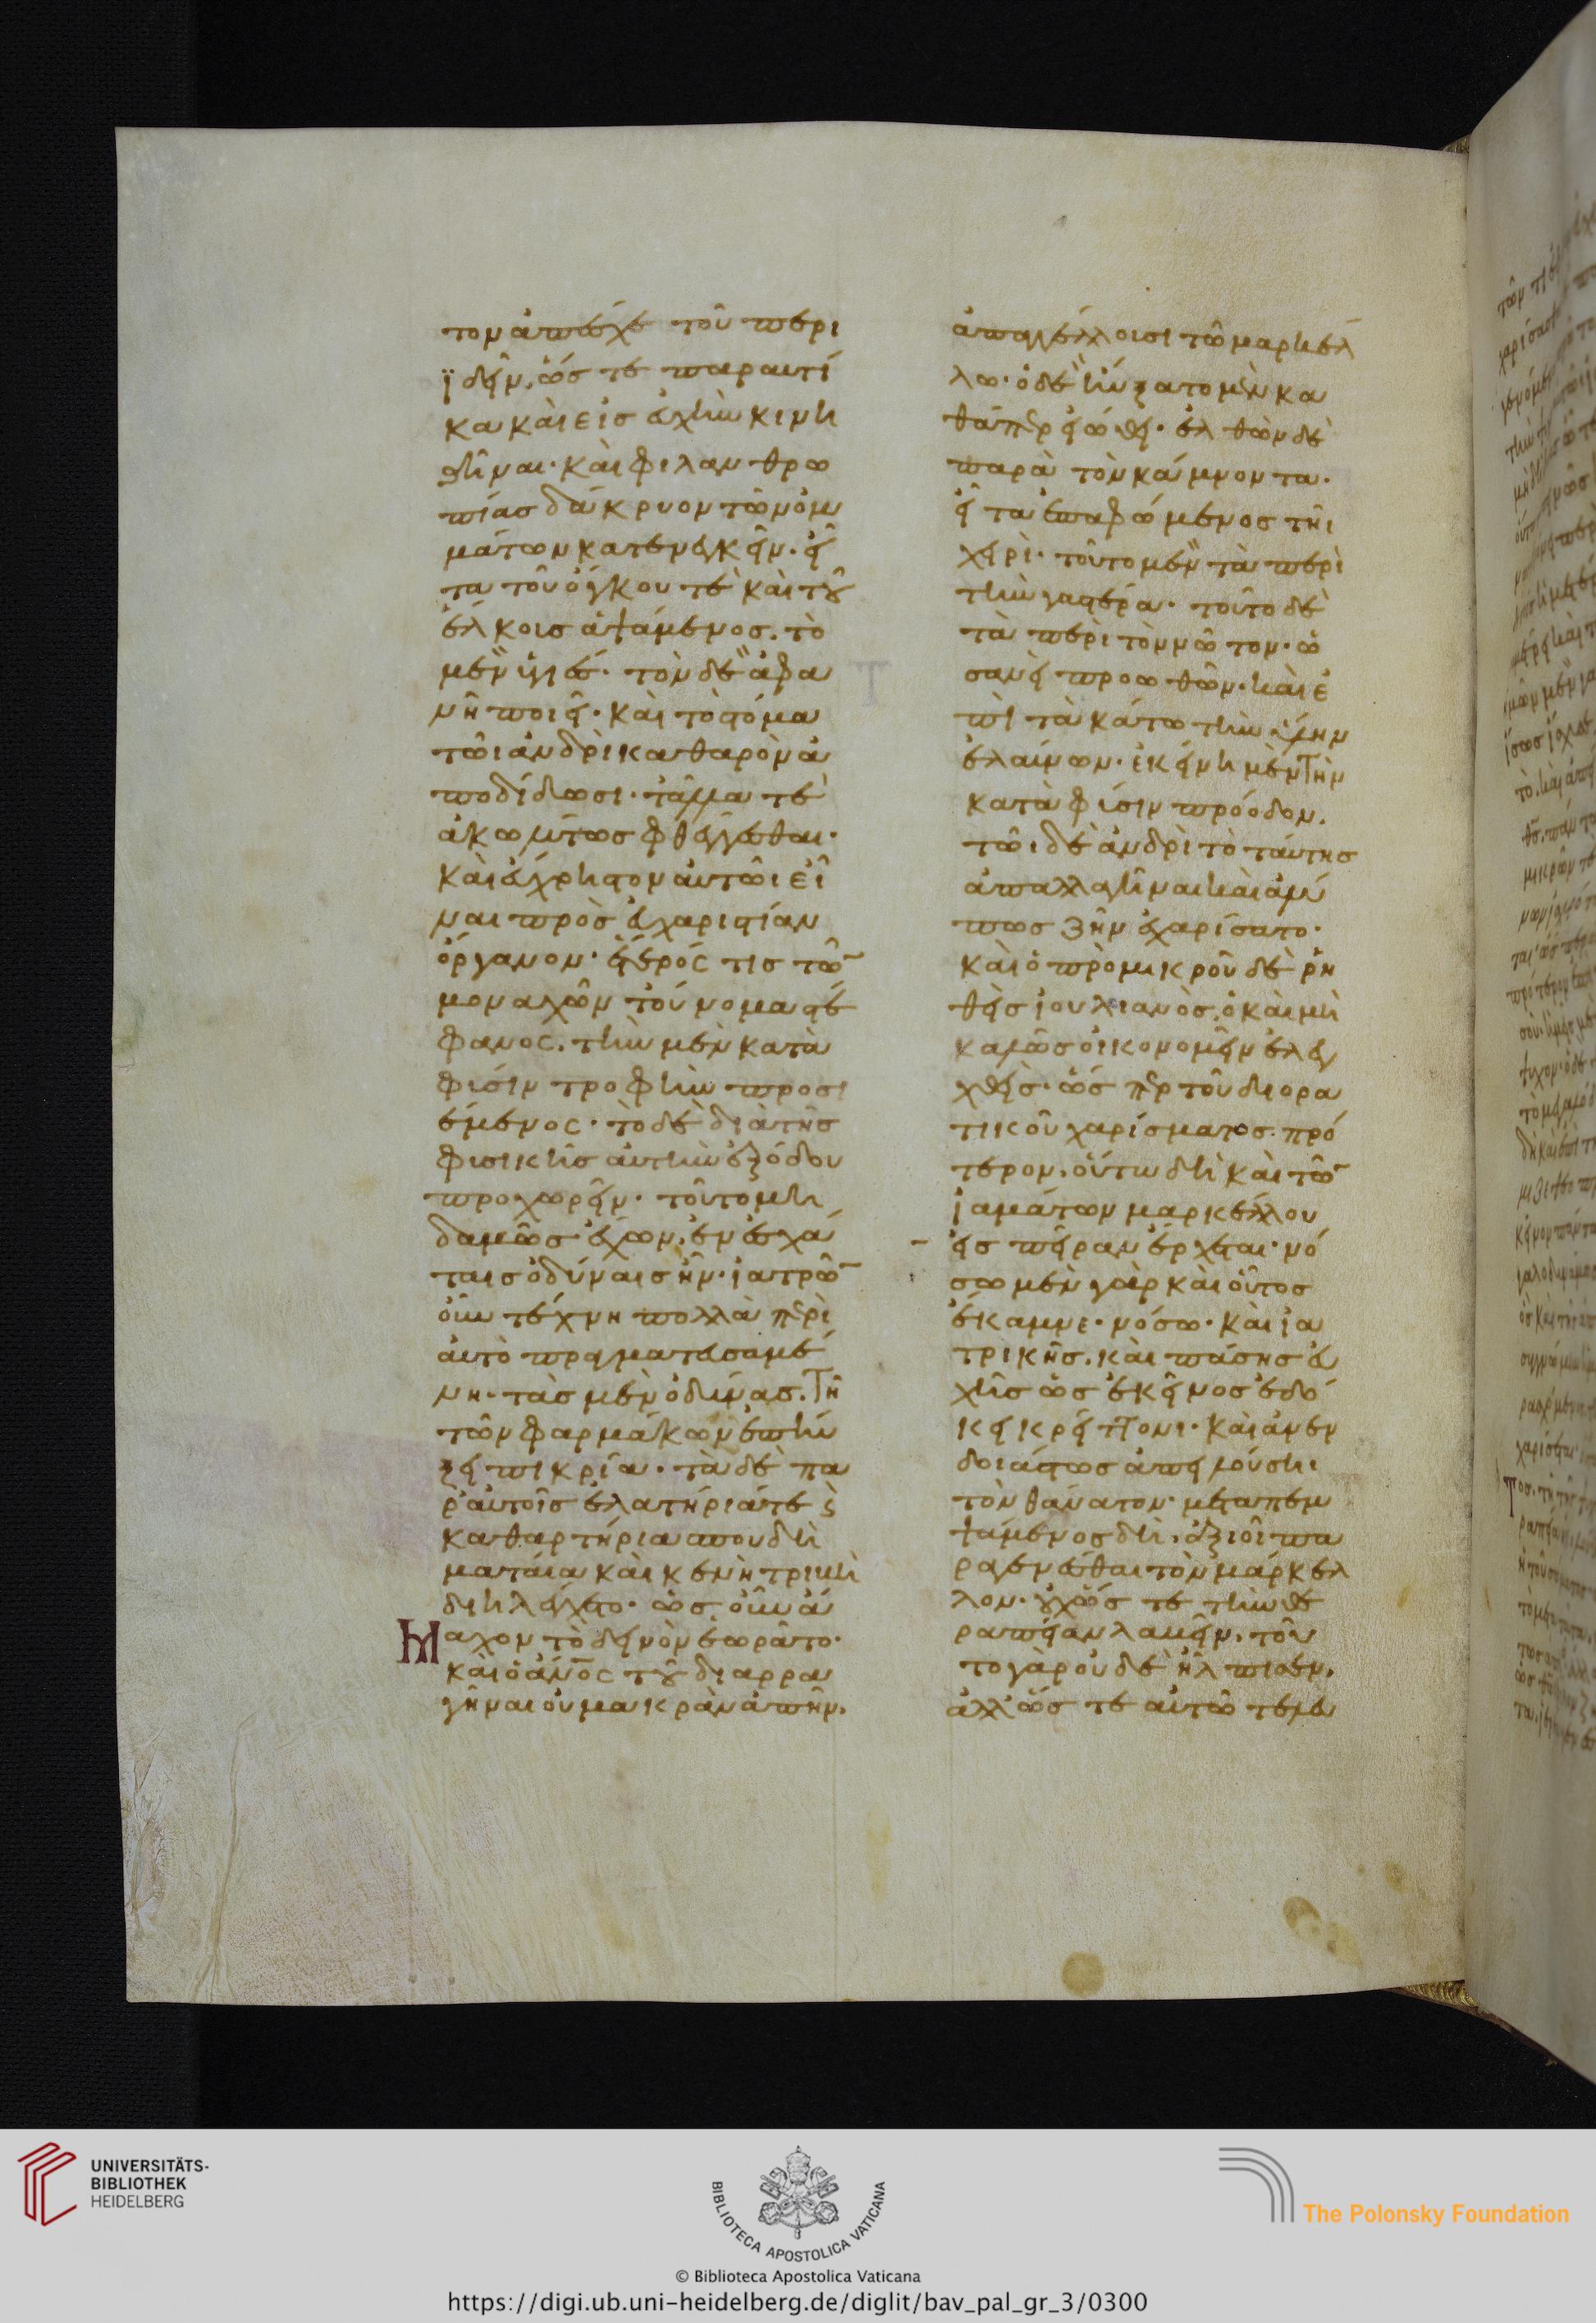 τον ἀπέσχε τοῦ περι
ϊδεῖν, ὥς τε παραυτί
κα καὶ εἰς εὐχὴν κινη
θῆναι· καὶ φιλανθρω
πίας δάκρυον τῶν ὀμ
μάτων κατενεγκεῖν· εἶ
τα τοῦ ὄγκου τὲ καὶ τοῦ
ἕλκους ἁψάμενος. τὸ
μὲν ὑγιές· τὸν δὲ ἀφα
νῆ ποιεῖ· καὶ τὸ στόμα
τῶι ἀνδρὶ καθαρὸν ἀ
ποδίδωσι· τἄλλα τὲ
ἀκωλύτως φθέγγεσθαι·
καὶ εὔχρηστον αὐτῶι εἶ
ναι πρὸς εὐχαριστίαν
ὄργανον· ἕτερός τις τῶν
μοναχῶν τοὔνομα στέ
φανος. τὴν μὲν κατὰ
φύσιν τροφὴν προσι
έμενος· τὸ δὲ διὰ τῆς
φυσικῆς αὐτὴν ἐξόδου
προχωρεῖν· τοῦτο μη
δαμῶς ἔχων, ἐν ἐσχά
ταις ὀδύναις ἦν· ἰατρῶν
οὖν τέχνη πολλὰ περὶ
αὐτὸ πραγματευσαμέ
νη· τὰς μὲν ὀδύνας. τῆ
τῶν φαρμάκων ἐπηύ
ξει πικρία· τὰ δὲ πα
ρ' αὐτοῖς ἐλατήρια τὲ καὶ
καθαρτήρια σπουδὴ
ματαία καὶ κενὴ τριβὴ
διηλέγχετο· ὡς οὖν ἄ
μαχον τὸ δεινὸν ἑωρᾶτο·
καὶ ὁ ἄνος τοῦ διαρρα
γῆναι οὐ μακρὰν ἀπῆν.
ἀπαγγέλλουσι τῶ μαρκέλ
λω· ὁ δὲ ηὔξατο μὲν κα
θάπερ εἰώθει· ἐλθὼν δὲ
παρὰ τὸν κάμνοντα.
εἶτα ἐπαφώμενος τῆι
χειρὶ· τοῦτο μὲν τὰ περὶ
τὴν γαστέρα· τοῦτο δὲ
τὰ περὶ τὸν νῶτον· ὡ
σανεὶ προωθῶν· καὶ ἐ
πὶ τὰ κάτω τὴν ὕλην
ἐλαύνων· ἐκείνη μὲν τὴν
κατὰ φύσιν πρόοδον.
τῶι δὲ ἀνδρὶ τὸ ταύτης
ἀπαλλαγῆναι καὶ ἀλύ
πως ζῆν ἐχαρίσατο·
καὶ ὁ πρὸ μικροῦ δὲ ῥη
θεὶς ἰουλιανὸς, ὁ καὶ μὴ
καλῶς οἰκονομεῖν ἐλεγ
χθεὶς· ὥσπερ τοῦ διορα
τικοῦ χαρίσματος πρό
τερον, οὕτω δὴ καὶ τῶν
ἰαμάτων μαρκέλλου
εἰς πεῖραν ἔρχεται· νό
σω μὲν γὰρ καὶ οὗτος
ἔκαμνε· νόσω· καὶ ἰα
τρικῆς. καὶ πάσης εὐ
χῆς ὡς ἐκεῖνος ἐδό
κει κρείττονι· καὶ ἀνεν
δοιάστως ἀπειλούσηι
τὸν θάνατον· μεταπεμ
ψάμενος δὴ, ἀξιοῖ πα
ραγενέσθαι τὸν μάρκελ
λον· οὐχ ὥς τε τὴν θε
ραπείαν λαβεῖν, τοῦ
το γὰρ οὐδὲ ἤλπισεν.
ἀλλ' ὥς τε αὐτῶ τελευ
UNIVERSITÄTS-
BIBLIOTHEK
HEIDELBERG
BIBLIOTECA APOSTOLICA VATICANA
The Polonsky Foundation
© Biblioteca Apostolica Vaticana
https://digi.ub.uni-heidelberg.de/diglit/bav_pal_gr_3/0300